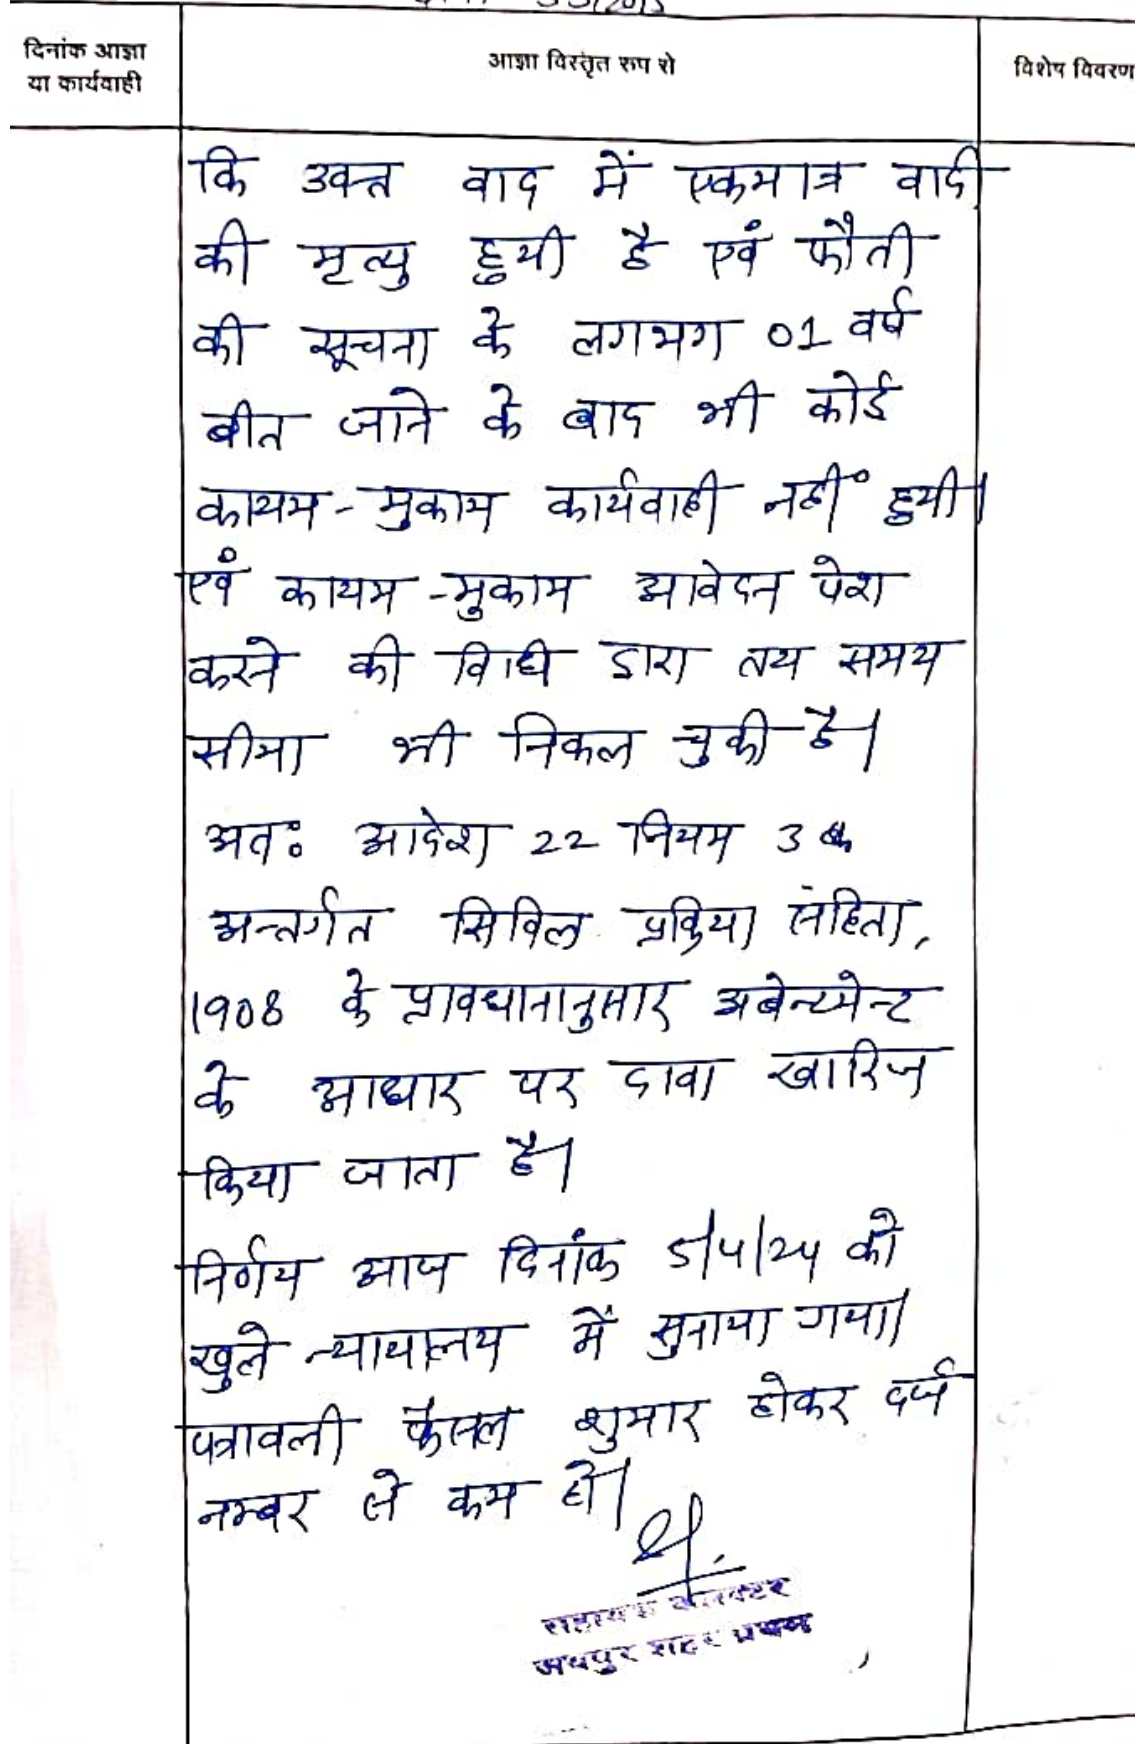 दिनांक आज्ञा
या कार्यवाही
आज्ञा विस्तृत रूप से
विशेष विवरण
कि उक्त वाद में एकमात्र वादी
की मृत्यु हुयी है एवं फौती
की सूचना के लगभग 01 वर्ष
बीत जाने के बाद भी कोई
कायम-मुकाम कार्यवाही नहीं हुयी।
एवं कायम-मुकाम आवेदन पेश
करने की विधि द्वारा तय समय
सीमा भी निकल चुकी है।
अतः आदेश 22 नियम 3 के
अन्तर्गत सिविल प्रक्रिया संहिता,
1908 के प्रावधानानुसार अबेन्टमेन्ट
के आधार पर दावा खारिज
किया जाता है।
निर्णय आज दिनांक 5/4/24 को
खुले न्यायालय में सुनाया गया।
पत्रावली फैसल शुमार होकर दर्ज
नम्बर से कम हो।
सहायक कलक्टर
जयपुर शहर प्रथम